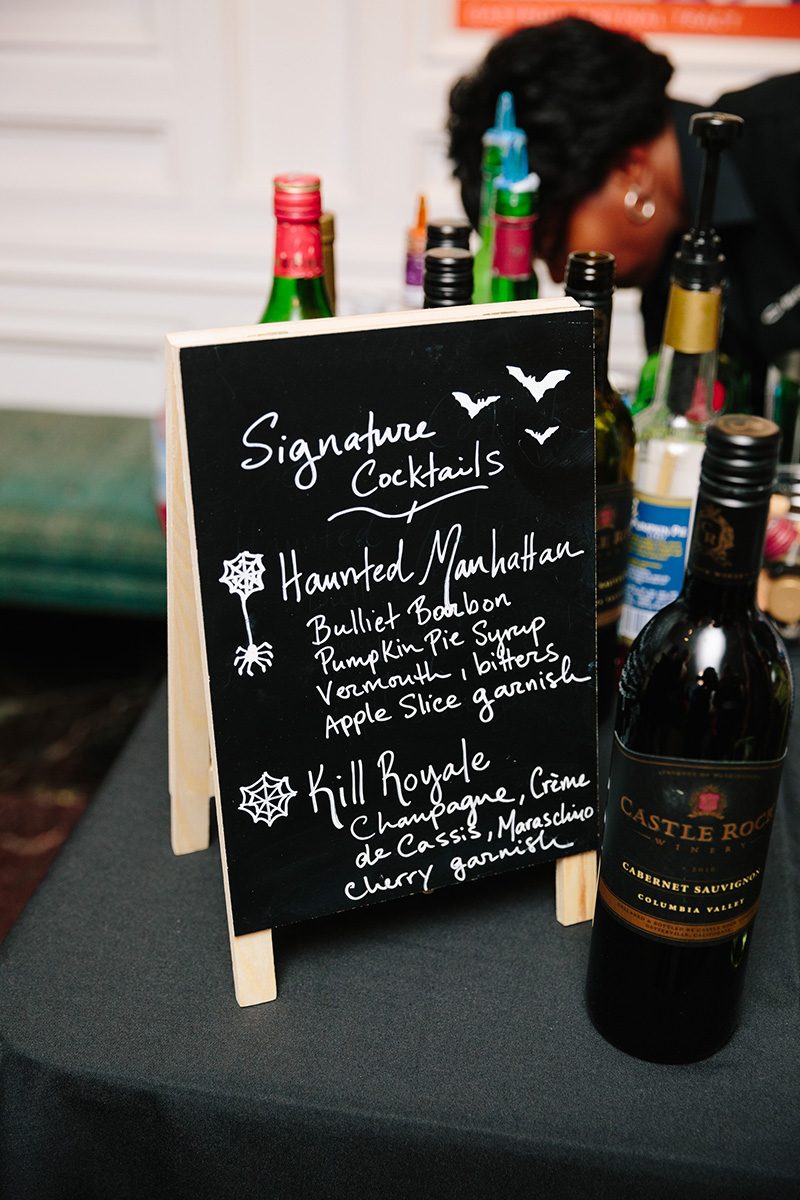 Signature
Cocktails
Haunted Manhattan
Bulliet Borbon
Pumpkin Pie Syrup
Vermouth, bitters
Apple Slice garnish
Kill Royale
Champagne, Crème
de Cassis, Maraschino
cherry garnish
CASTLE ROCK
WINERY
CABERNET SAUVIGNON
COLUMBIA VALLEY